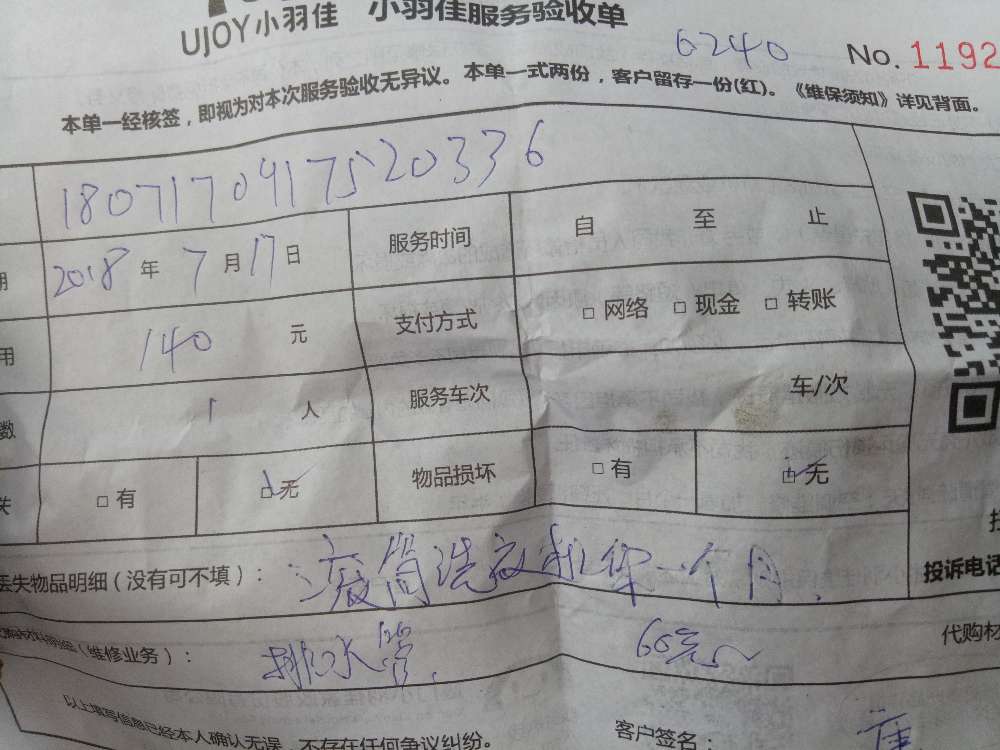 UJOY小羽佳 小羽佳服务验收单
6240 No. 1192
本单一经核签，即视为对本次服务验收无异议。本单一式两份，客户留存一份(红)。《维保须知》详见背面。
180717041752033 6
期 2018 年 7 月 17 日 服务时间 自 至 止
用 140 元 支付方式 □ 网络 □ 现金 □ 转账
数 1 人 服务车次 车/次
失 □ 有 □ 无 物品损坏 □ 有 □ 无
丢失物品明细（没有可不填）： 滚筒洗衣机保一个月
投诉电话
（维修业务）： 排水管 60元 代购材
以上填写信息已经本人确认无误，不存在任何争议纠纷。 客户签名：